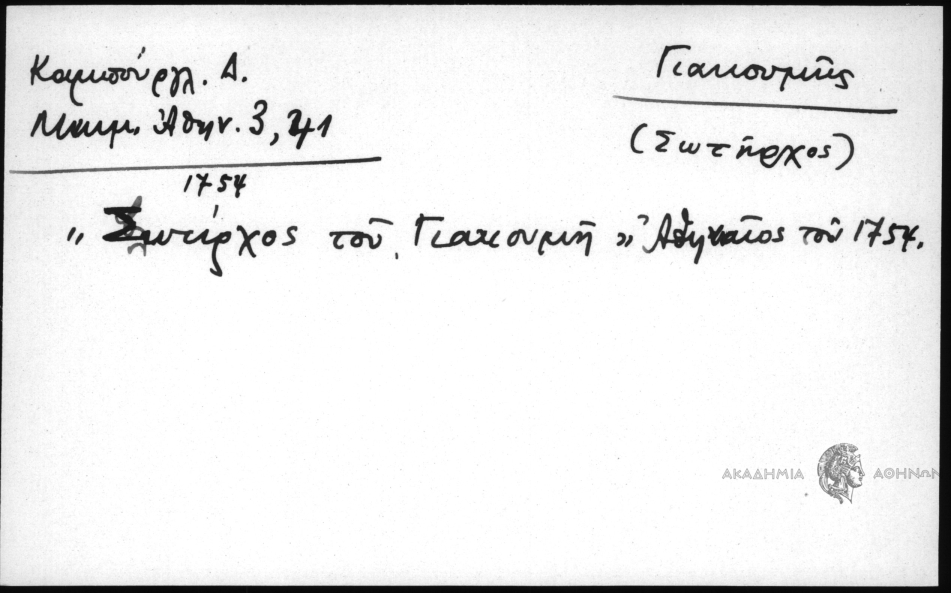 Καμπούργλ. Δ.
Μνημ. Ἀθην. 3, 241
1754
Γιακουμῆς
(Σωτῆρχος)
„ Σωτίρχος τοῦ Γιακουμῆ „ Ἀθηναῖος τοῦ 1754.
ΑΚΑΔΗΜΙΑ ΑΘΗΝΩΝ